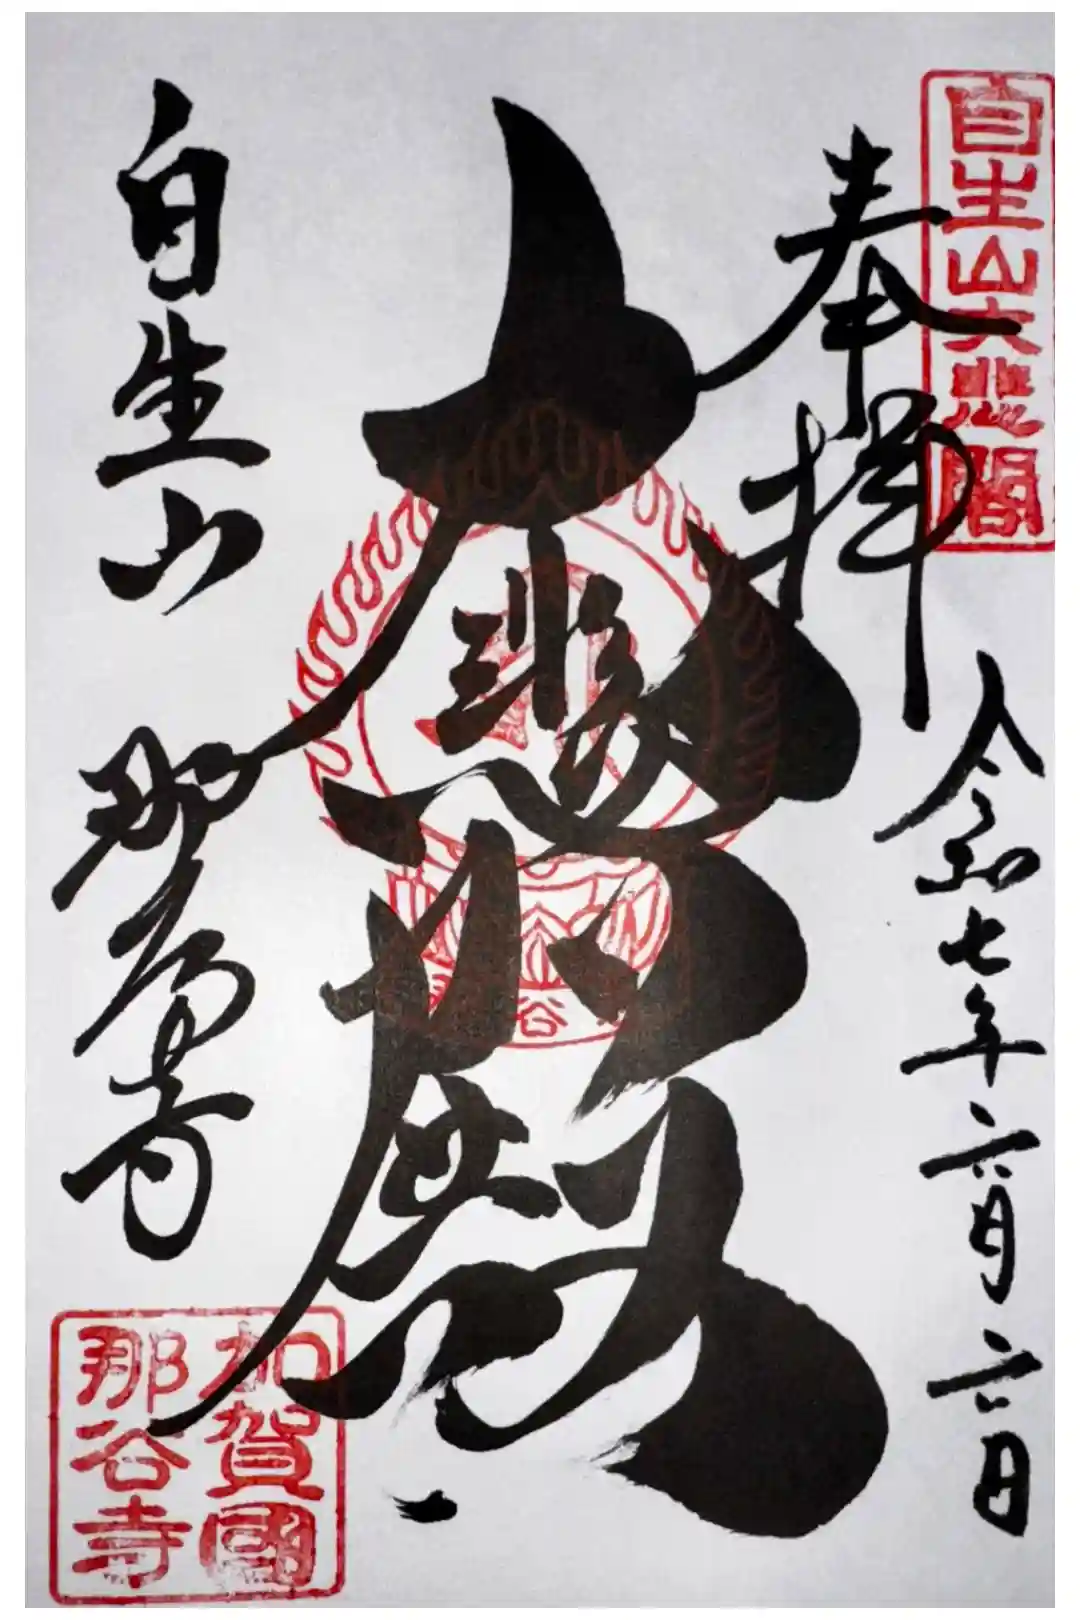 自生山大悲閣
奉拝
令和七年六月六日
谷
自生山
那谷寺
加賀國
那谷寺